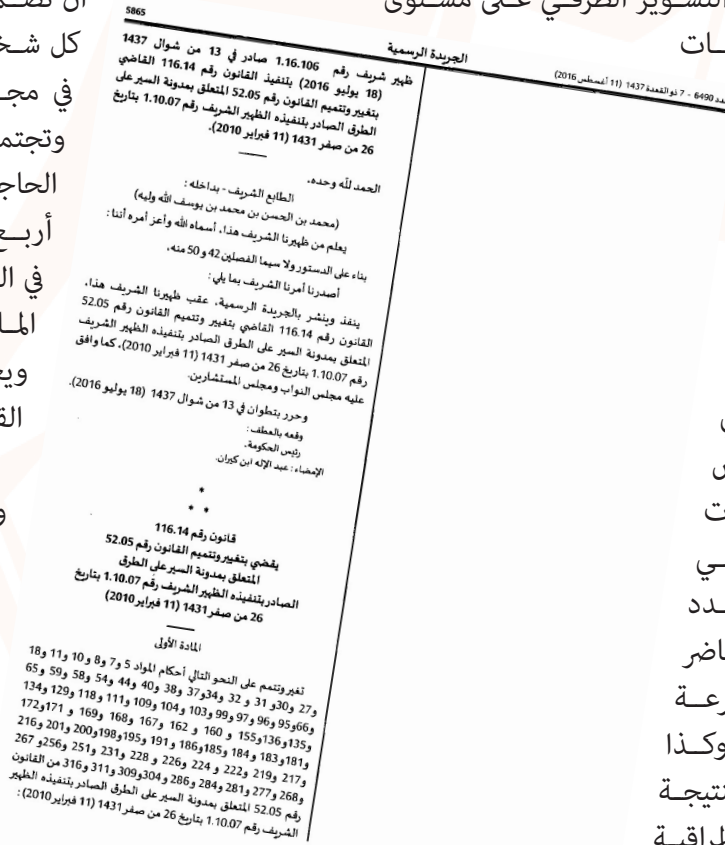 التشوير الطرقي على مستوى
5865
الجريدة الرسمية
عدد 6490 - 7 ذو القعدة 1437 (11 أغسطس 2016)
ظهير شريف رقم 1.16.106 صادر في 13 من شوال 1437
(18 يوليو 2016) بتنفيذ القانون رقم 116.14 القاضي
بتغيير وتتميم القانون رقم 52.05 المتعلق بمدونة السير على
الطرق الصادر بتنفيذه الظهير الشريف رقم 1.10.07 بتاريخ
26 من صفر 1431 (11 فبراير 2010).
الحمد لله وحده،
الطابع الشريف - بداخله :
(محمد بن الحسن بن محمد بن يوسف الله وليه)
يعلم من ظهيرنا الشريف هذا، أسماه الله وأعز أمره أننا :
بناء على الدستور ولا سيما الفصلين 42 و 50 منه،
أصدرنا أمرنا الشريف بما يلي :
ينفذ وينشر بالجريدة الرسمية، عقب ظهيرنا الشريف هذا،
القانون رقم 116.14 القاضي بتغيير وتتميم القانون رقم 52.05
المتعلق بمدونة السير على الطرق الصادر بتنفيذه الظهير الشريف
رقم 1.10.07 بتاريخ 26 من صفر 1431 (11 فبراير 2010)، كما وافق
عليه مجلس النواب ومجلس المستشارين.
وحرر بتطوان في 13 من شوال 1437 (18 يوليو 2016).
وقعه بالعطف :
رئيس الحكومة،
الإمضاء : عبد الإله ابن كيران.
*
* *
قانون رقم 116.14
يقضي بتغيير وتتميم القانون رقم 52.05
المتعلق بمدونة السير على الطرق
الصادر بتنفيذه الظهير الشريف رقم 1.10.07 بتاريخ
26 من صفر 1431 (11 فبراير 2010)
المادة الأولى
تغير وتتمم على النحو التالي أحكام المواد 5 و7 و8 و10 و11 و18
و27 و30 و31 و32 و34 و37 و38 و40 و44 و54 و58 و59 و65
و66 و95 و96 و97 و99 و103 و104 و109 و111 و118 و129 و134
و135 و136 و155 و160 و162 و167 و168 و169 و171 و172
و181 و183 و184 و185 و186 و191 و195 و198 و200 و201 و216
و217 و219 و222 و224 و226 و228 و231 و251 و256 و267
و268 و277 و281 و284 و286 و304 و309 و311 و316 من القانون
رقم 52.05 المتعلق بمدونة السير على الطرق الصادر بتنفيذه الظهير
الشريف رقم 1.10.07 بتاريخ 26 من صفر 1431 (11 فبراير 2010) :
كل
في
أربع
في
وكذا
نتيجة